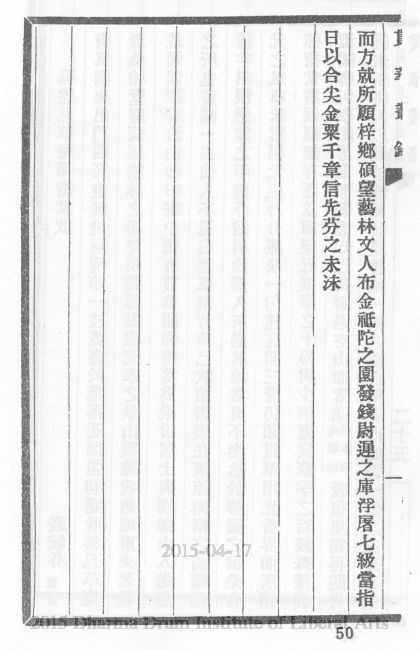 而方就所願梓鄉碩望藝林文人布金祗陀之園發錢尉遲之庫浮屠七級當指
日以合尖金粟千章信先芬之未沬
2015-04-17
2015 Dharma Drum Institute of Liberal Arts
50